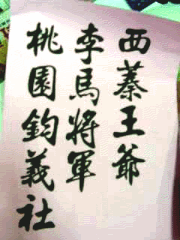 西蓁王爺
李馬將軍
桃園鈞義社